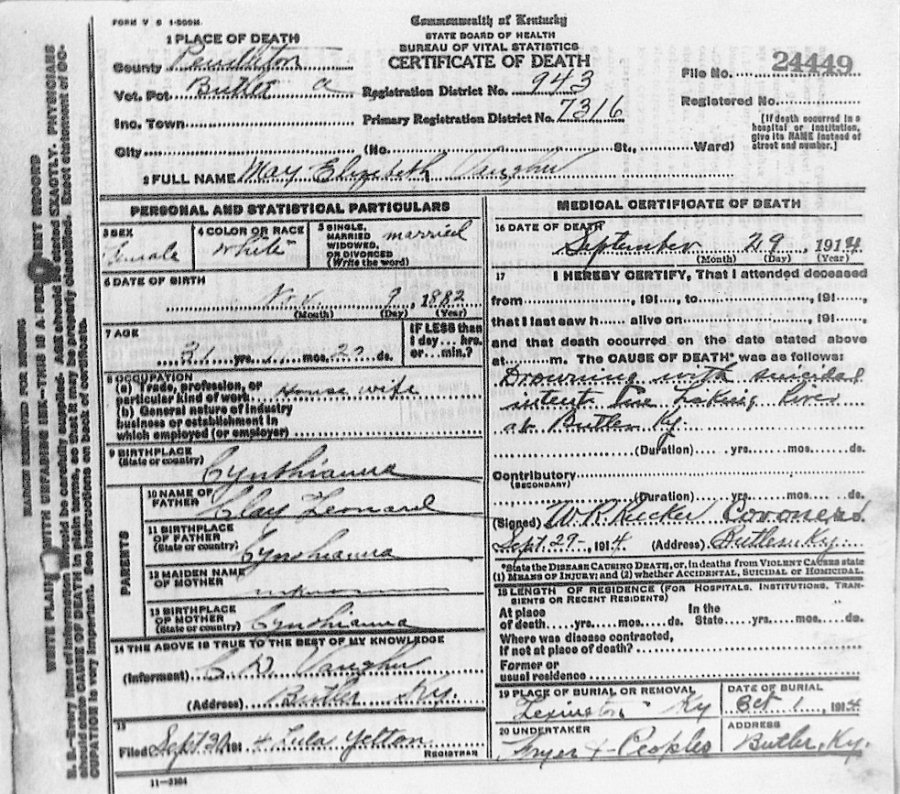 FORM V S 1-500M.
Commonwealth of Kentucky
STATE BOARD OF HEALTH
BUREAU OF VITAL STATISTICS
CERTIFICATE OF DEATH
1 PLACE OF DEATH
County Pendleton
Vot. Pct Butler a
Inc. Town
City (No. St., Ward)
Registration District No. 943
Primary Registration District No. 7316
File No. 24449
Registered No.
[If death occurred in a
hospital or institution,
give its NAME instead of
street and number.]
2 FULL NAME May Elizabeth Vaughn
PERSONAL AND STATISTICAL PARTICULARS
3 SEX
Female
4 COLOR OR RACE
White
5 SINGLE,
MARRIED
WIDOWED,
OR DIVORCED
(Write the word)
married
6 DATE OF BIRTH
Nov 9, 1882
(Month) (Day) (Year)
7 AGE
31 yrs. mos. ds.
IF LESS than
1 day... hrs.
or... min.?
8 OCCUPATION
(a) Trade, profession, or
particular kind of work House wife
(b) General nature of industry
business or establishment in
which employed (or employer)
9 BIRTHPLACE
(State or country)
Cynthianna
PARENTS
10 NAME OF
FATHER
Clay Leonard
11 BIRTHPLACE
OF FATHER
(State or country)
Cynthianna
12 MAIDEN NAME
OF MOTHER
unknown
13 BIRTHPLACE
OF MOTHER
(State or country)
Cynthianna
14 THE ABOVE IS TRUE TO THE BEST OF MY KNOWLEDGE
(Informant) C. D. Vaughn
(Address) Butler Ky.
15
Filed Sept 30 1914 Lula Yelton
REGISTRAR
11—3184
MEDICAL CERTIFICATE OF DEATH
16 DATE OF DEATH
September 29, 1914
(Month) (Day) (Year)
17 I HEREBY CERTIFY, That I attended deceased
from, 191, to, 191,
that I last saw h alive on, 191,
and that death occurred on the date stated above
at m. The CAUSE OF DEATH* was as follows:
Drowning with suicidal
intent Licking River
at Butler Ky.
(Duration) yrs. mos. ds.
Contributory
(SECONDARY)
(Duration) yrs. mos. ds.
(Signed) W. R. Coroner
Sept 29-, 1914 (Address) Butler Ky.
*State the DISEASE CAUSING DEATH, or, in deaths from VIOLENT CAUSES state
(1) MEANS OF INJURY; and (2) whether ACCIDENTAL, SUICIDAL or HOMICIDAL.
18 LENGTH OF RESIDENCE (FOR HOSPITALS, INSTITUTIONS, TRAN-
SIENTS OR RECENT RESIDENTS)
At place In the
of death yrs. mos. ds. State yrs. mos. ds.
Where was disease contracted,
if not at place of death?
Former or
usual residence
19 PLACE OF BURIAL OR REMOVAL
Lexington Ky
DATE OF BURIAL
Oct 1, 1914
20 UNDERTAKER
Fryer & Peoples
ADDRESS
Butler, Ky.
MARGIN RESERVED FOR BINDING
WRITE PLAINLY WITH UNFADING INK—THIS IS A PERMANENT RECORD
N. B.—Every item of information should be carefully supplied. AGE should be stated EXACTLY. PHYSICIANS
should state CAUSE OF DEATH in plain terms, so that it may be properly classified. Exact statement of OC-
CUPATION is very important. See instructions on back of certificate.